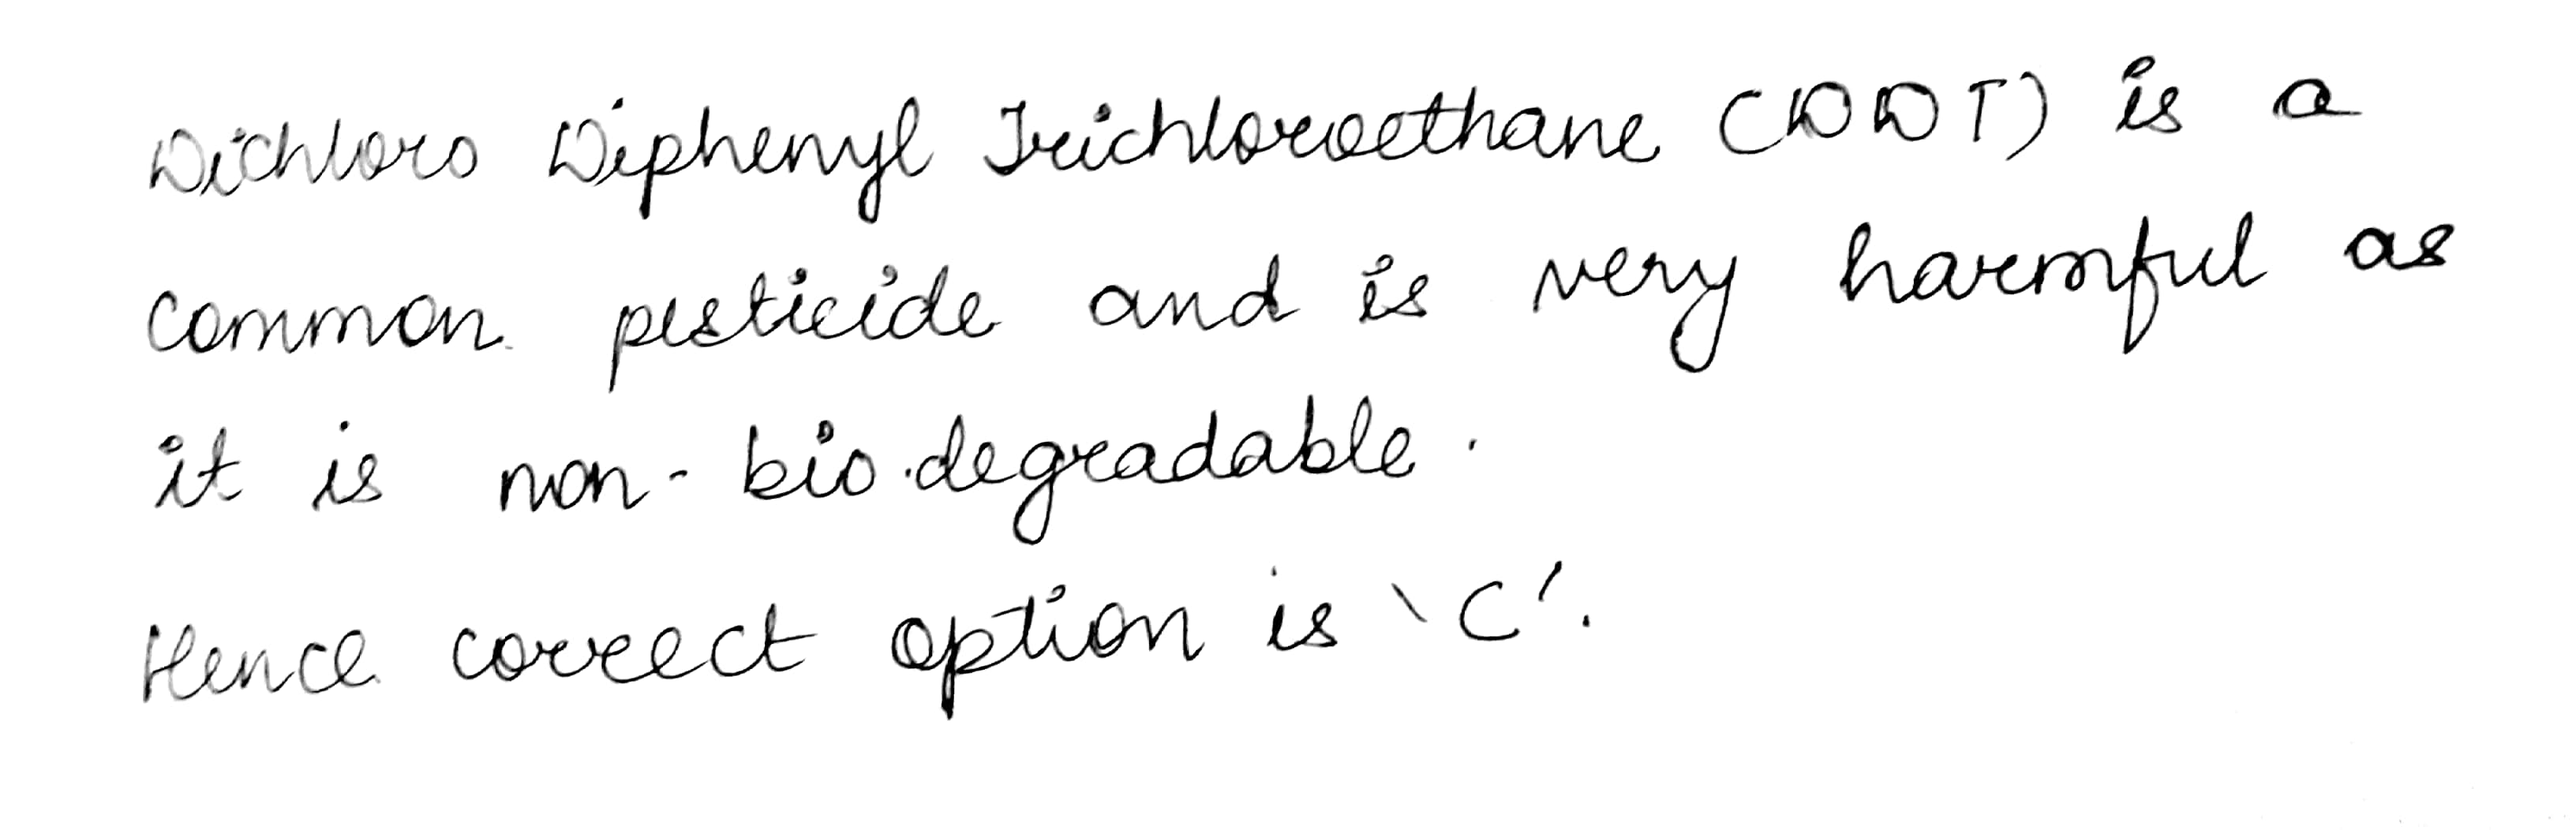 Dichloro Diphenyl Trichloroethane (DDT) is a
common pesticide and is very harmful as
it is non-biodegradable.
Hence correct option is 'C'.